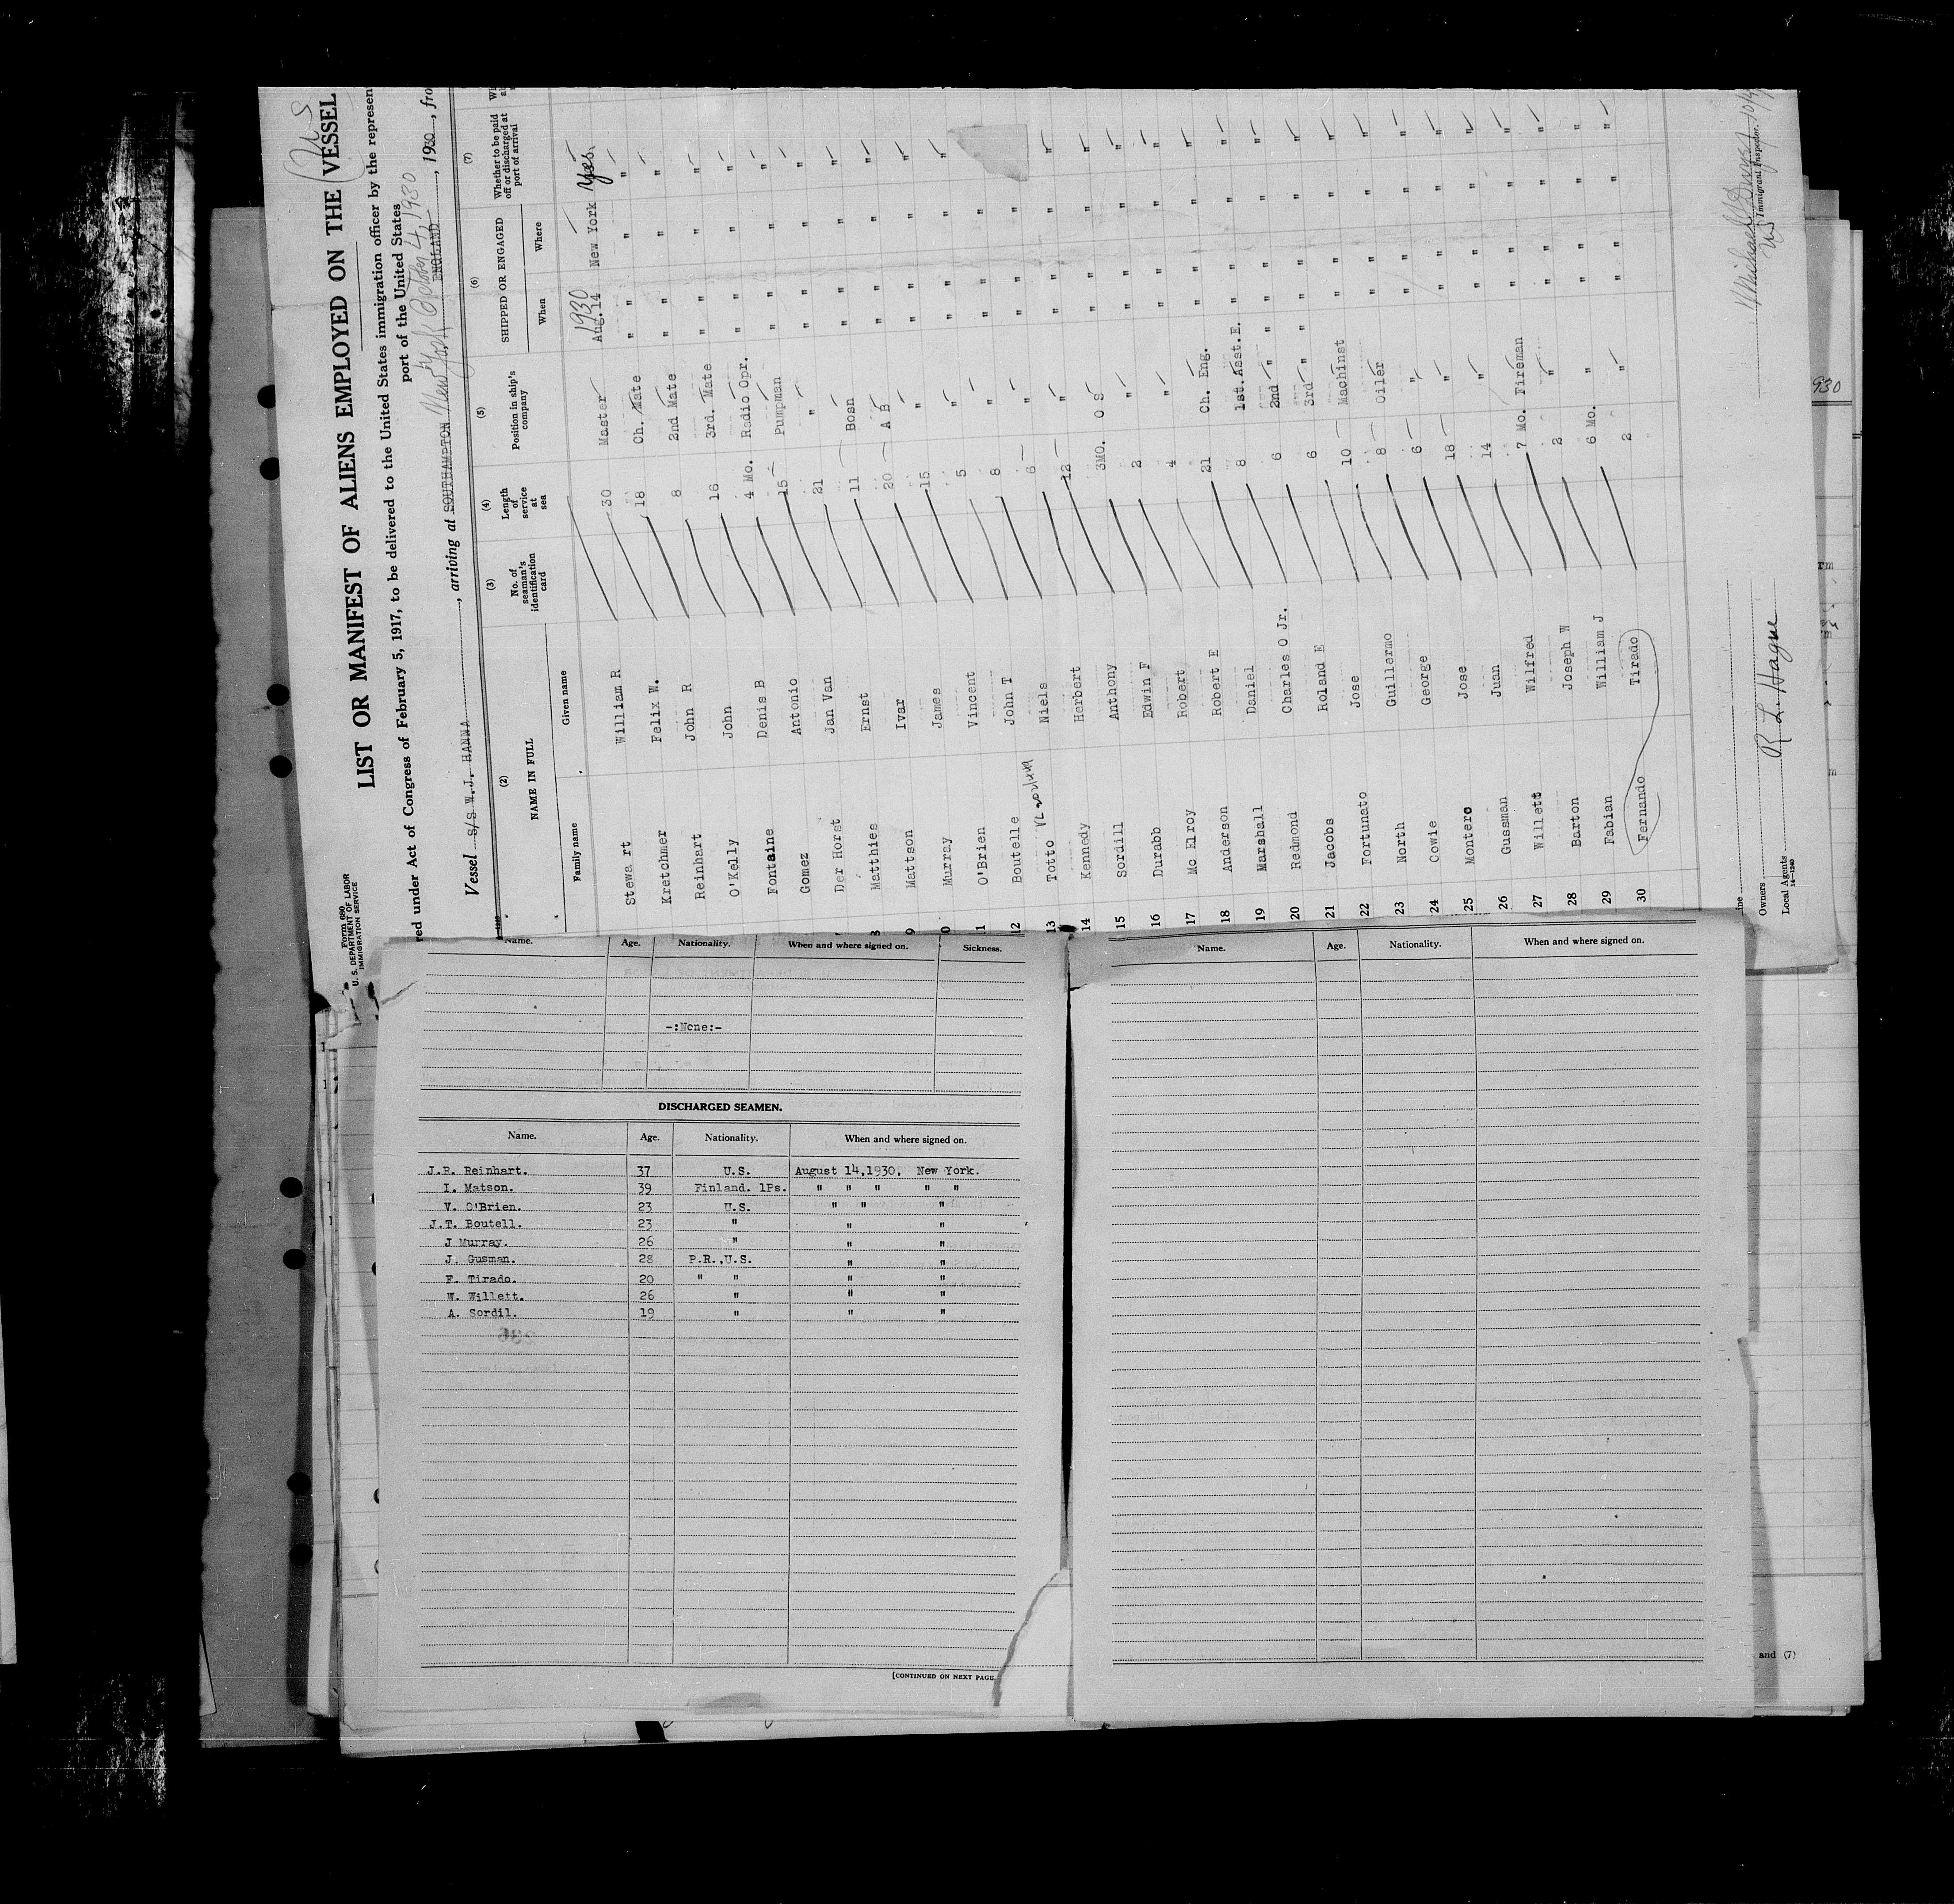 Form 680
U. S. DEPARTMENT OF LABOR
IMMIGRATION SERVICE
LIST OR MANIFEST OF ALIENS EMPLOYED ON THE VESSEL
red under Act of Congress of February 5, 1917, to be delivered to the United States immigration officer by the represen
port of the United States
Vessel S/S W.J. HANNA, arriving at SOUTHAMPTON New York October 4, 1930 ENGLAND, 1930, fro
(2) (3) (4) (5) (6) (7)
NAME IN FULL No. of seaman's identification card Length of service at sea Position in ship's company SHIPPED OR ENGAGED Whether to be paid off or discharged at port of arrival
Family name Given name When Where
1930
Stewart William R 30 Master Aug.14 New York Yes
Kretchmer Felix W. 18 Ch. Mate " " "
Reinhart John R 8 2nd Mate " " "
O'Kelly John 16 3rd. Mate " " "
Fontaine Denis B 4 Mo. Radio Opr. " " "
Gomez Antonio 15 Pumpman " " "
Der Horst Jan Van 21 " " " "
8 Matthies Ernst 11 Bosn " " "
9 Mattson Ivar 20 A B " " "
0 Murray James 15 " " " "
11 O'Brien Vincent 5 " " " "
12 Boutelle John T 8 " " "
13 Totto Niels 6 " " " "
14 Kennedy Herbert 12 " " " "
15 Sordill Anthony 3MO. O S " " "
16 Durabb Edwin F 2 " " " "
17 Mc Elroy Robert 4 " " " "
18 Anderson Robert E 21 Ch. Eng. " " "
19 Marshall Daniel 8 1st.Asst.E. " " "
20 Redmond Charles O Jr. 6 2nd " " " "
21 Jacobs Roland E 6 3rd " " " "
22 Fortunato Jose 10 Machinst " " "
23 North Guillermo 8 Oiler " " "
24 Cowie George 6 " " " "
25 Montero Jose 18 " " " "
26 Gussman Juan 14 " " " "
27 Willett Wilfred 7 Mo. Fireman " " "
28 Barton Joseph W 2 " " " "
29 Fabian William J 6 Mo. " " " "
30 Fernando Tirado 2 " " " "
Immigrant Inspector.
Owners
Local Agents R. L. Hague
14-1240
930
Name. Age. Nationality. When and where signed on. Sickness.
-:None:-
DISCHARGED SEAMEN.
Name. Age. Nationality. When and where signed on.
J.R. Reinhart. 37 U.S. August 14,1930, New York.
I. Matson. 39 Finland. 1Ps. " " " " "
V. O'Brien. 23 U.S. " " "
J.T. Boutell. 23 " " "
J Murray. 26 " " "
J. Gusman. 28 P.R.,U.S. " "
F. Tirado. 20 " " " "
W. Willett. 26 " " "
A. Sordil. 19 " " "
[CONTINUED ON NEXT PAGE.
Name. Age. Nationality. When and where signed on.
and (7)